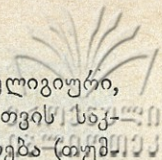 ელიგიური,
თვის საკ-
ება (თუმ-